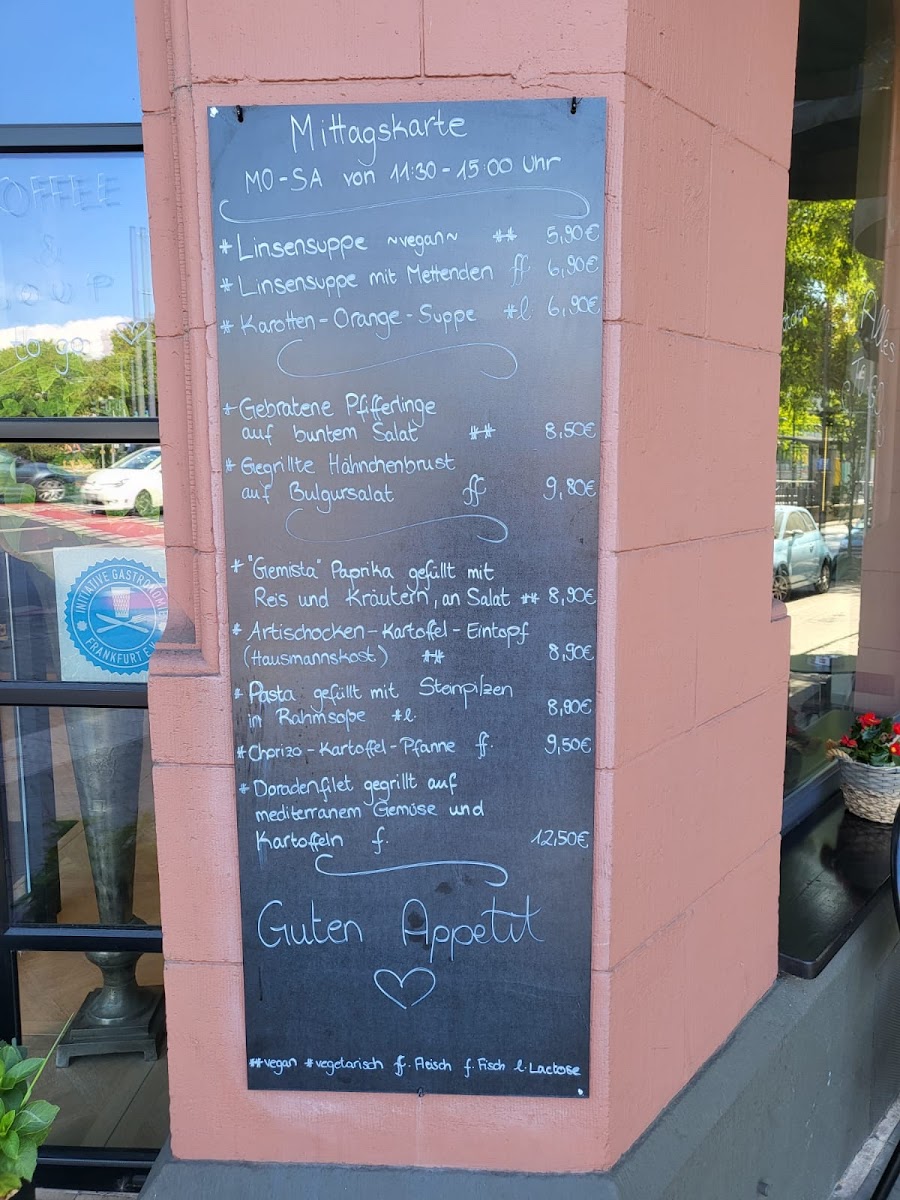 Mittagskarte
MO-SA von 11:30-15:00 Uhr
* Linsensuppe ~vegan~ ** 5,90€
* Linsensuppe mit Mettenden ff 6,90€
* Karotten-Orange-Suppe *l 6,90€
* Gebratene Pfifferlinge
auf buntem Salat ** 8,50€
* Gegrillte Hähnchenbrust
auf Bulgursalat ff 9,80€
* "Gemista" Paprika gefüllt mit
Reis und Kräutern, an Salat ** 8,90€
* Artischocken-Kartoffel-Eintopf
(Hausmannskost) ** 8,90€
* Pasta gefüllt mit Steinpilzen
in Rahmsoße *l. 8,90€
* Chorizo-Kartoffel-Pfanne ff. 9,50€
* Doradenfilet gegrillt auf
mediterranem Gemüse und
Kartoffeln f. 12,50€
Guten Appetit
**vegan *vegetarisch ff. Fleisch f. Fisch l. Lactose
COFFEE
&
SOUP
to go
INITIATIVE GASTRONOMIE
FRANKFURT E.V.
Alles